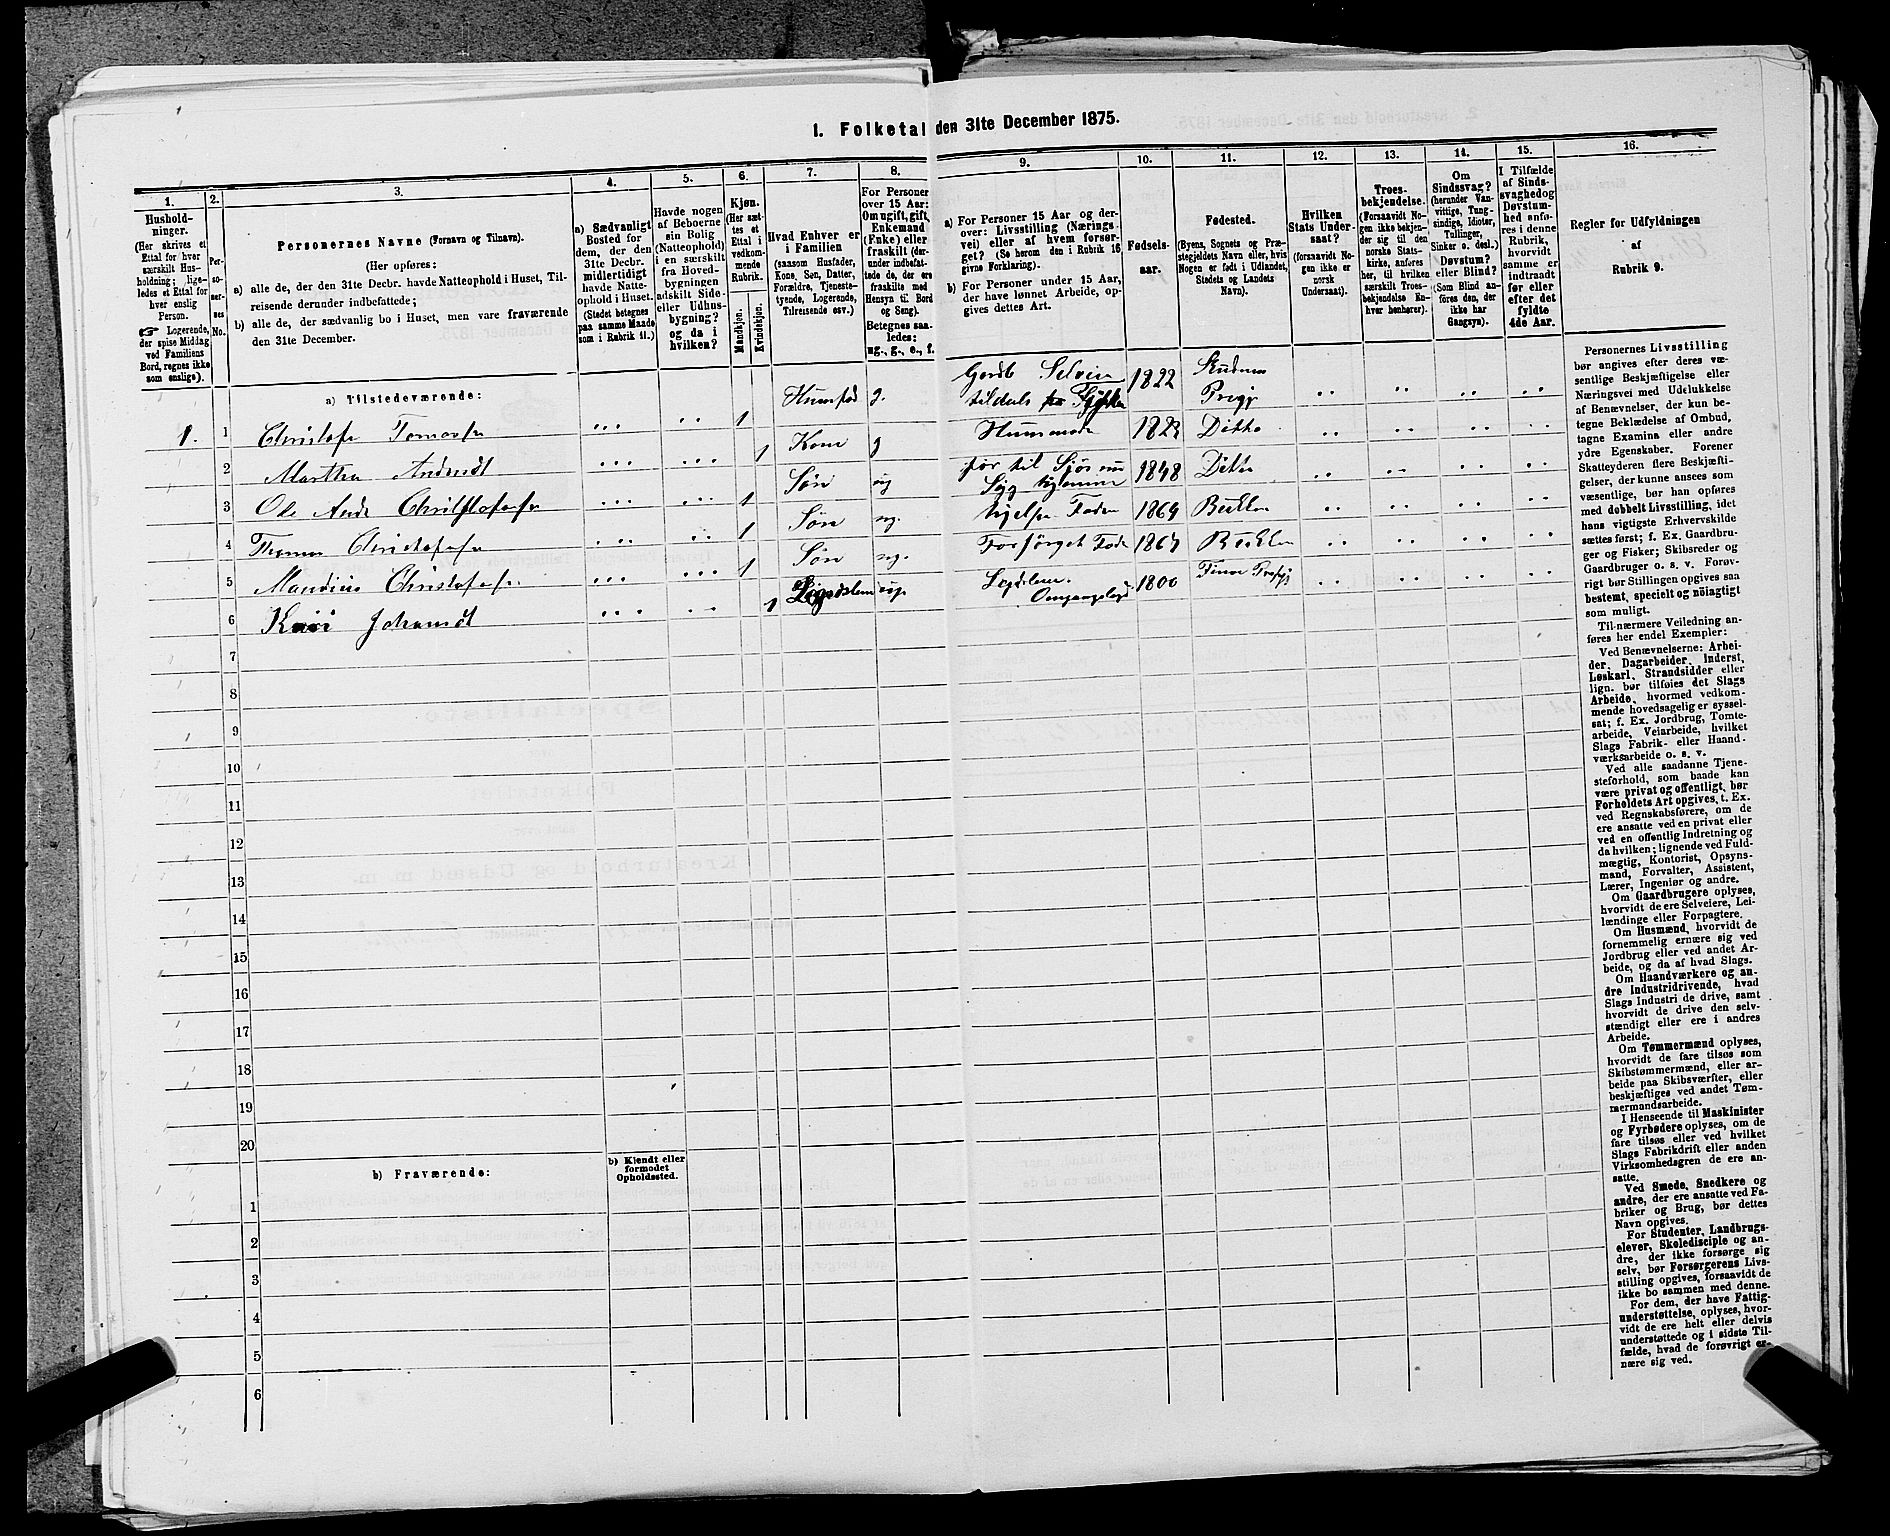 1. Folketal den 31te December 1875.
1.
Hushold-
ninger.
(Her skrives et
Ettal for hver
særskilt Hus-
holdning; lige-
ledes et Ettal for
hver enslig
Person.
☞ Logerende,
der spise Middag
ved Familiens
Bord, regnes ikke
som enslige).
2.
Per-
so-
ner-
nes
No.
3.
Personernes Navne (Fornavn og Tilnavn).
(Her opføres:
a) alle de, der den 31te Decbr. havde Natteophold i Huset, Til-
reisende derunder indbefattede;
b) alle de, der sædvanlig bo i Huset, men vare fraværende
den 31te December.
4.
a) Sædvanligt
Bosted for
dem, der den
31te Decbr.
midlertidigt
havde Natte-
ophold i Huset.
(Stedet betegnes
paa samme Maade
som i Rubrik 11.)
5.
Havde nogen
af Beboerne
sin Bolig
(Natteophold)
i en særskilt
fra Hoved-
bygningen
adskilt Side-
eller Udhus-
bygning?
og da i
hvilken?
6.
Kjøn.
(Her sæt-
tes et
Ettal i
vedkom-
mende
Rubrik.
Mandkjøn.
Kvindekjøn.
7.
Hvad Enhver er
i Familien
(saasom Husfader,
Kone, Søn, Datter,
Forældre, Tjeneste-
tyende, Logerende,
Tilreisende osv.)
8.
For Personer
over 15 Aar:
Om ugift, gift,
Enkemand
(Enke) eller
fraskilt (der-
under indbefat-
tede de, der ere
fraskilte med
Hensyn til Bord
og Seng).
Betegnes saa-
ledes:
ug., g., e., f.
9.
a) For Personer 15 Aar og der-
over: Livsstilling (Nærings-
vei) eller af hvem forsør-
get? (Se herom den i Rubrik 16
givne Forklaring).
b) For Personer under 15 Aar,
der have lønnet Arbeide, op-
gives dettes Art.
10.
Fødsels-
aar.
11.
Fødested.
(Byens, Sognets og Præ-
stegjeldets Navn eller, hvis
Nogen er født i Udlandet,
Stedets og Landets
Navn).
12.
Hvilken
Stats Under-
saat?
(forsaavidt No-
gen ikke er
norsk
Undersaat).
13.
Troes-
bekjendelse.
(Forsaavidt No-
gen ikke bekjen-
der sig til den
norske Stats-
kirke, anføres
her, til hvilken
særskilt Troes-
bekjendelse En-
hver henhører).
14.
Om
Sindssvag?
(herunder Van-
vittige, Tung-
sindige, Idioter,
Tullinger,
Sinker o. desl.)
Døvstum?
eller Blind?
(Som Blind an-
føres den, der
ikke har
Gangsyn).
15.
I Tilfælde
af Sinds-
svaghed og
Døvstum-
hed anfø-
res i denne
Rubrik,
hvorvidt
samme er
indtraadt
før eller
efter det
fyldte
4de Aar.
16.
Regler for Udfyldningen
af
Rubrik 9.
a) Tilstedeværende:
1. 1 Christofer ... ... 1 Husfad g. Gaardb Selveier 1822
2 Martha ... ... 1 Kone g Husmoder 1823 Ditto
3 Ole ... ... 1 Søn ug for til Sjøs nu 1848 Ditto
4 Christofersen ... ... 1 Søn ug. hjelper Faderen 1864
5 Christofersen ... ... 1 Søn ug. Forsørget Fader 1867
6 Kari ... ... 1 1800
7
8
9
10
11
12
13
14
15
16
17
18
19
20
b) Fraværende:
b) Kjendt eller
formodet
Opholdssted.
1
2
3
4
5
6
Personernes Livsstilling
bør angives efter deres væ-
sentlige Beskjæftigelse eller
Næringsvei med Udelukkelse
af Benævnelser, der kun be-
tegne Beklædelse af Ombud,
tagne Examina eller andre
ydre Egenskaber. Forener
Skatteyderen flere Beskjæfti-
gelser, der kunne ansees som
væsentlige, bør han opføres
med dobbelt Livsstilling, idet
hans vigtigste Erhvervskilde
sættes først; f. Ex. Gaardbru-
ger og Fisker; Skibsreder og
Gaardbruger o. s. v. Forøv-
rigt bør Stillingen opgives saa
bestemt, specielt og nøiagtigt
som muligt.
Til nærmere Veiledning an-
føres her endel Exempler:
Ved Benævnelserne: Arbei-
der, Dagarbeider, Inderst,
Løskarl, Strandsidder eller
lign. bør tilføies det Slags
Arbeide, hvormed vedkom-
mende hovedsagelig er syssel-
sat; f. Ex. Jordbrug, Tomte-
arbeide, Veiarbeide, hvilket
Slags Fabrik- eller Haand-
værksarbeide o. s. v.
Ved alle saadanne Tjene-
steforhold, som baade kan
være privat og offentlig, bør
Forholdets Art opgives, t. Ex.
ved Regnskabsførere, om de
ere ansatte ved en privat eller
ved en offentlig Indretning og
da hvilken; lignende ved Fuld-
mægtig, Kontorist, Opsyns-
mand, Forvalter, Assistent,
Lærer, Ingeniør og andre.
Om Gaardbrugere oplyses,
hvorvidt de ere Selveiere, Lei-
lændinge eller Forpagtere.
Om Husmænd, hvorvidt de
fornemmelig ernære sig ved
Jordbrug eller ved andet Ar-
beide, og da af hvad Slags.
Om Haandværkere og an-
dre Industridrivende, hvad
Slags Industri de drive, samt
hvorvidt de drive den selv-
stændigt eller ere i andres
Arbeide.
Om Tømmermænd oplyses,
hvorvidt de fare tilsøs som
Skibstømmermænd, eller ar-
beide paa Skibsværfter, eller
beskjæftiges ved andet Tøm-
mermandsarbeide.
I Henseende til Maskinister
og Fyrbødere oplyses, om de
fare tilsøs eller ved hvilket
Slags Fabrikdrift eller anden
Virksomhedsgren de ere an-
satte.
Ved Smede, Snedkere og
andre, der ere ansatte ved Fa-
briker og Brug, bør dettes
Navn opgives.
For Studenter, Landbrugs-
elever, Skoledisciple og an-
dre, der ikke forsørge sig
selv, bør Forsørgerens Livs-
stilling opgives, forsaavidt de
ikke bo sammen med denne.
For dem, der have Fattig-
understøttelse, oplyses, hvor-
vidt de ere helt eller delvis
understøttede og i sidste Til-
fælde, hvad de forøvrigt er-
nære sig ved.